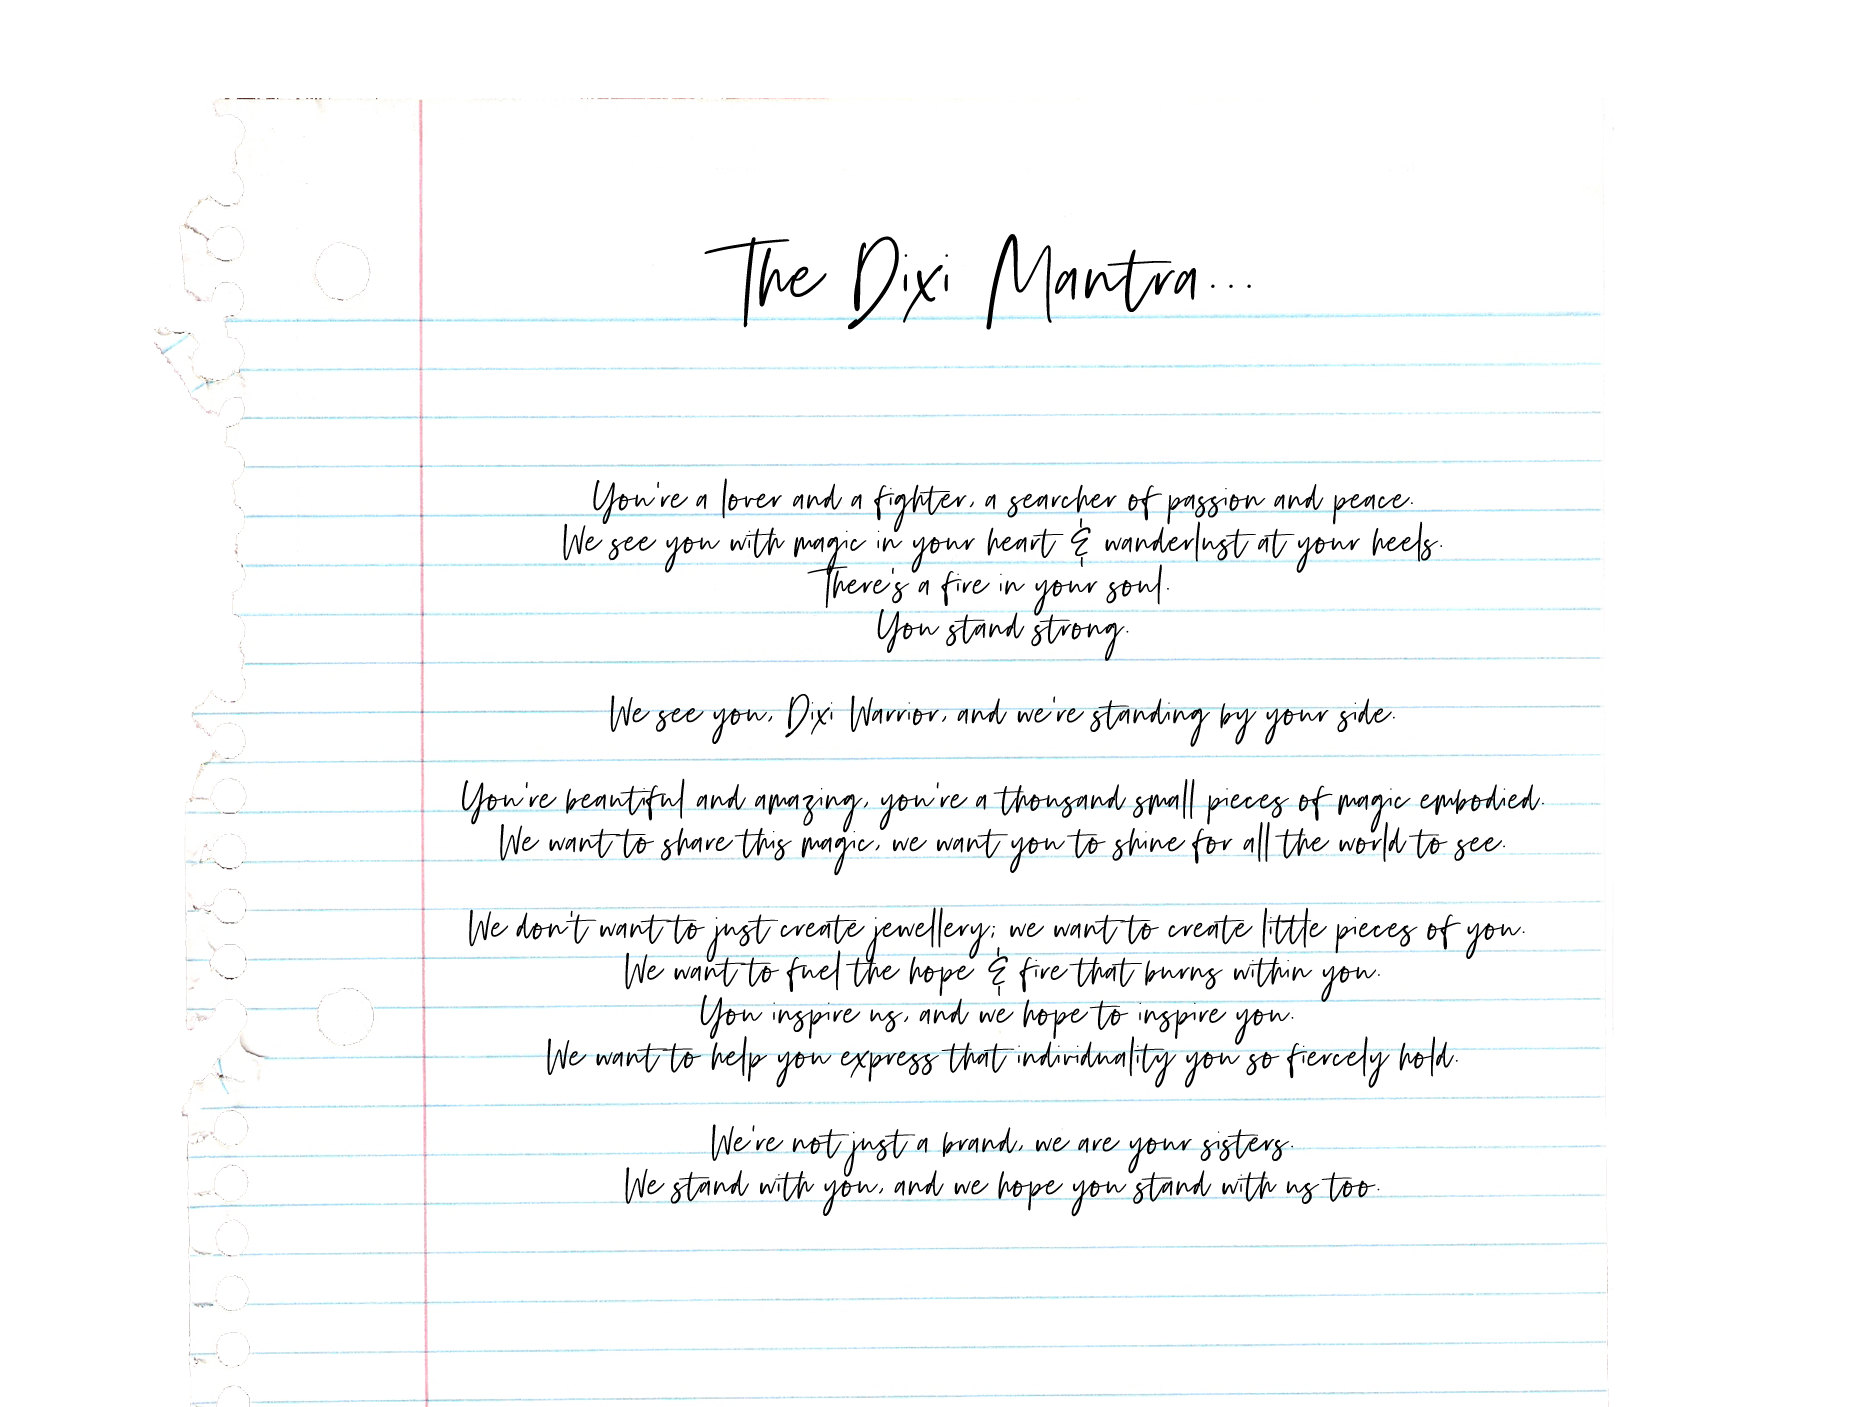 The Dixi Mantra...
You're a lover and a fighter, a searcher of passion and peace.
We see you with magic in your heart & wanderlust at your heels.
There's a fire in your soul.
You stand strong.
We see you, Dixi Warrior, and we're standing by your side.
You're beautiful and amazing, you're a thousand small pieces of magic embodied.
We want to share this magic, we want you to shine for all the world to see.
We don't want to just create jewellery; we want to create little pieces of you.
We want to fuel the hope & fire that burns within you.
You inspire us, and we hope to inspire you.
We want to help you express that individuality you so fiercely hold.
We're not just a brand, we are your sisters.
We stand with you, and we hope you stand with us too.